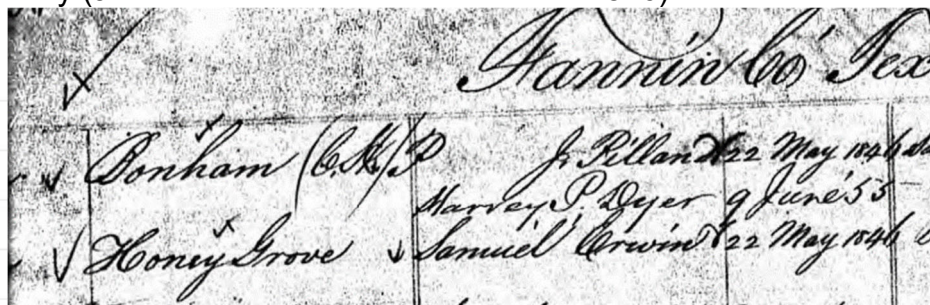 Fannin Co Tex
Bonham (C.H.) P J. Rilland 22 May 1846
Harvey P. Dyer 9 June 55
Honey Grove Samuel Erwin 22 May 1846